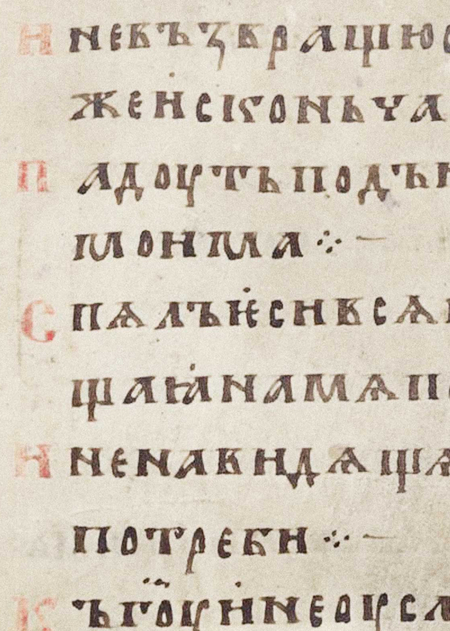 Иневъзвращюс
женсконьча
Падоутьподън
моима ⁘ –
Спѧлъѥсивсѧ
щаꙗнамѧпо
Иненавидѧщѧ
потреби ⁘ –
Къг҃оуинеоусл